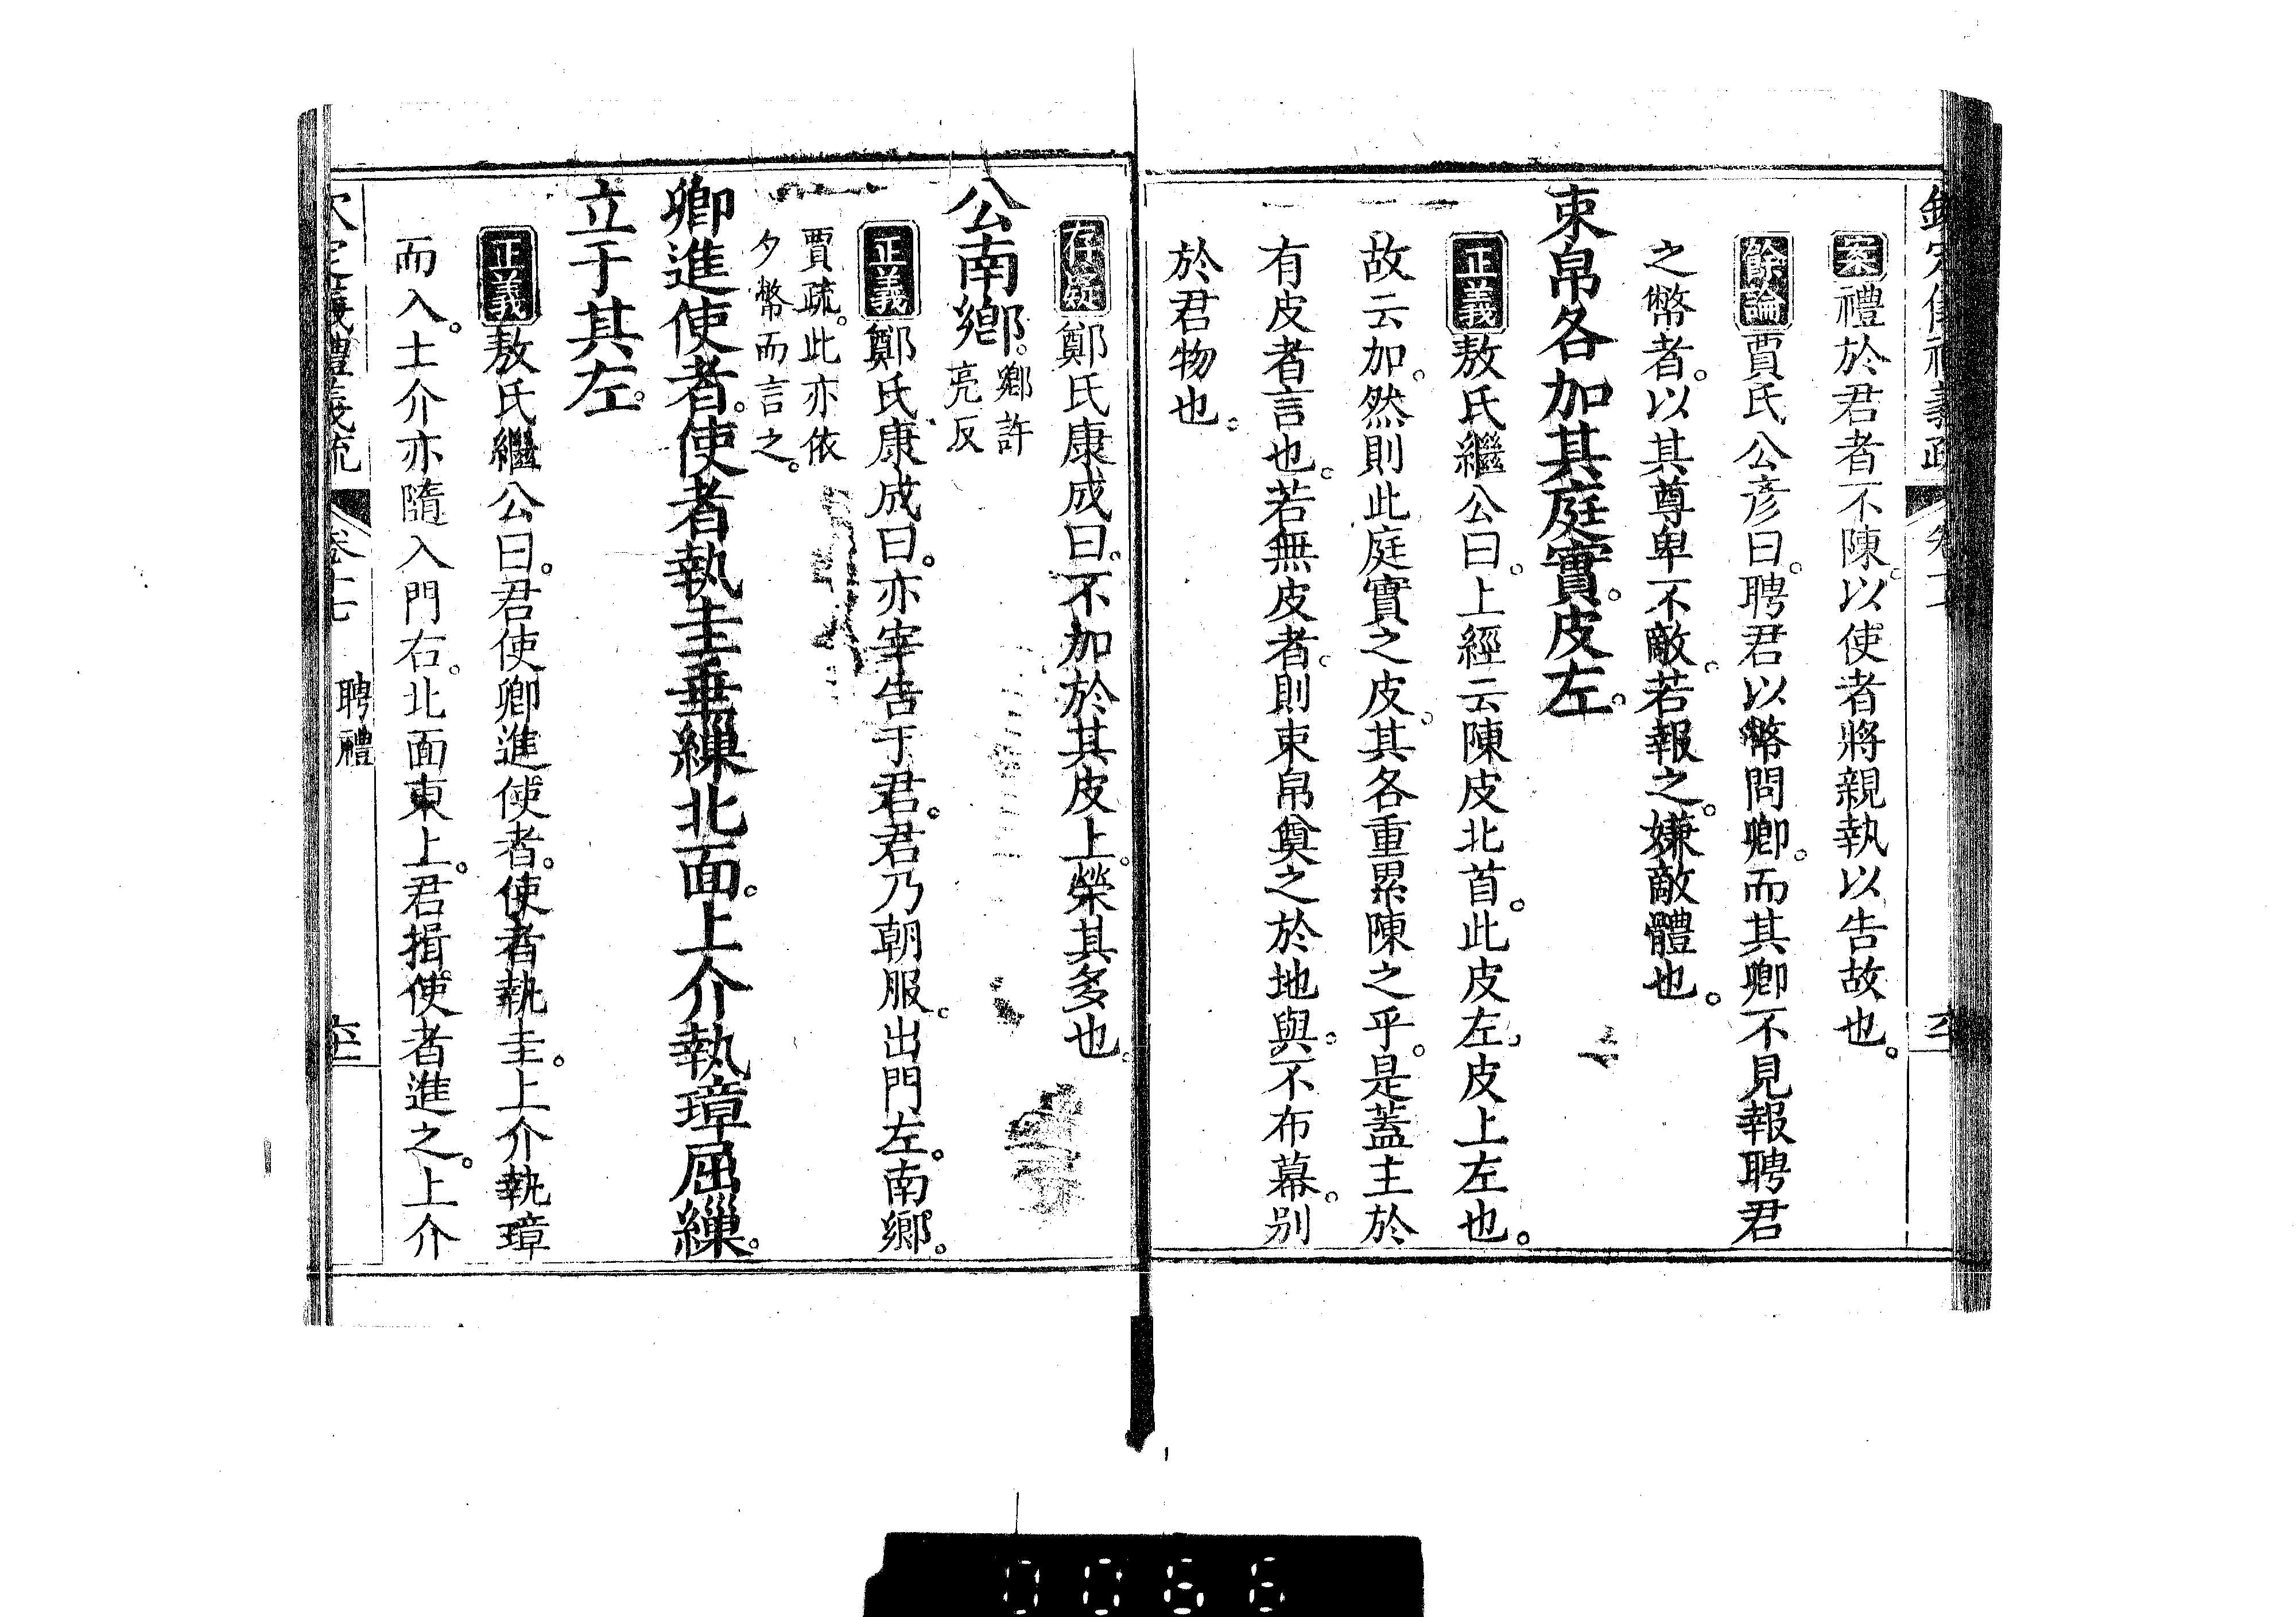 案禮於君者不陳。以使者將親執以告故也。
餘論賈氏公彦曰。聘君以幣問卿。而其卿不見報聘君
之幣者。以其尊卑不敵。若報之。嫌敵體也。
束帛各加其庭實。皮左。
正義敖氏繼公曰。上經云陳皮北首。此皮左。皮上左也。
故云加。然則此庭實之皮。其各重累陳之乎。是蓋主於
有皮者言也。若無皮者。則束帛奠之於地與。不布幕。别
於君物也。
存疑鄭氏康成曰。不加於其皮上。榮其多也。
公南鄉。鄉許
亮反
正義鄭氏康成曰。亦宰告于君。君乃朝服。出門左。南鄉。
賈疏。此亦依
夕幣而言之。
卿進使者。使者執圭垂繅北面。上介執璋屈繅。
立于其左。
正義敖氏繼公曰。君使卿進使者。使者執圭。上介執璋
而入。士介亦隨入門右。北面東上。君揖使者進之。上介
卷十七 聘禮
0066